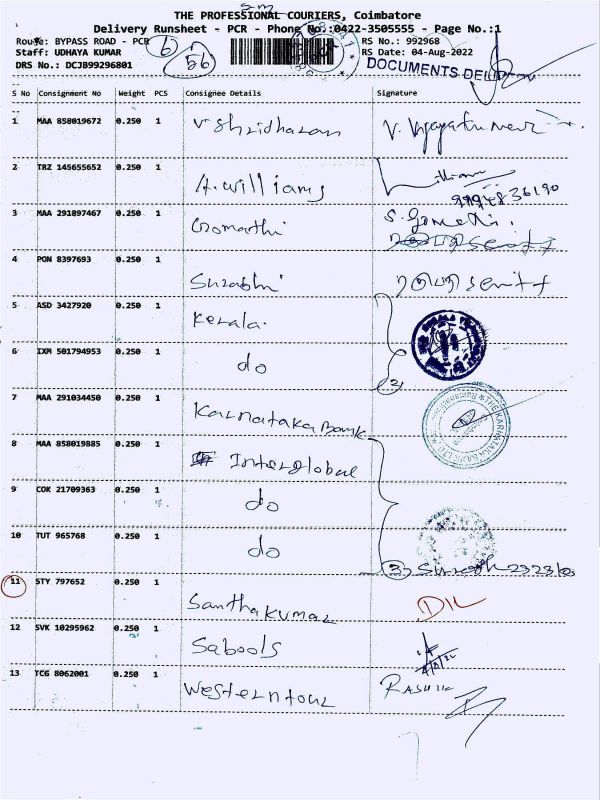 THE PROFESSIONAL COURIERS, Coimbatore
Delivery Runsheet - PCR - Phone No.:0422-3505555 - Page No.:1
Route: BYPASS ROAD - PCR
RS No.: 992968
Staff: UDHAYA KUMAR
RS Date: 04-Aug-2022
DRS No.: DCJB99296801
6
56
DOCUMENTS
S No Consignment No Weight PCS Consignee Details Signature
1 MAA 858019672 0.250 1 V. Shridharan
2 TRZ 145655652 0.250 1 A. Williams
3 MAA 291897467 0.250 1 Gomathi S. Gomathi.
4 PON 8397693 0.250 1 Surabhi
5 ASD 3427920 0.250 1 Kerala.
6 IXM 501794953 0.250 1 do 2
7 MAA 291034450 0.250 1 Karnataka Bank
8 MAA 858019885 0.250 1 Interglobal
9 COK 21709363 0.250 1 do
10 TUT 965768 0.250 1 do 3 Suresh
11 STY 797652 0.250 1 Santhakumar DIL
12 SVK 10295962 0.250 1 Sabools
13 TCG 8062001 0.250 1 Western tour